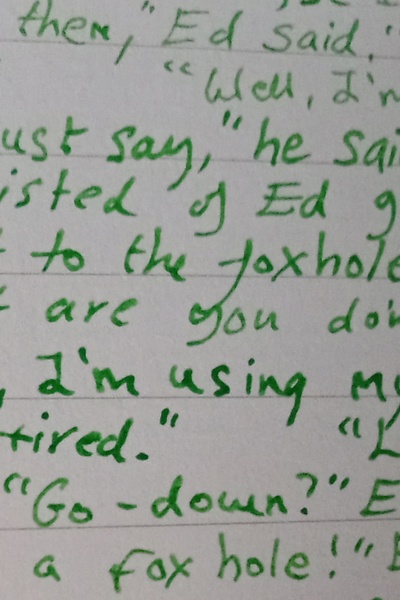 them," Ed said.
"Well, I'm
ust say," he sai
isted of Ed g
to the foxhole
are you doin
, I'm using my
tired." "L
"Go-down?" E
a foxhole!"